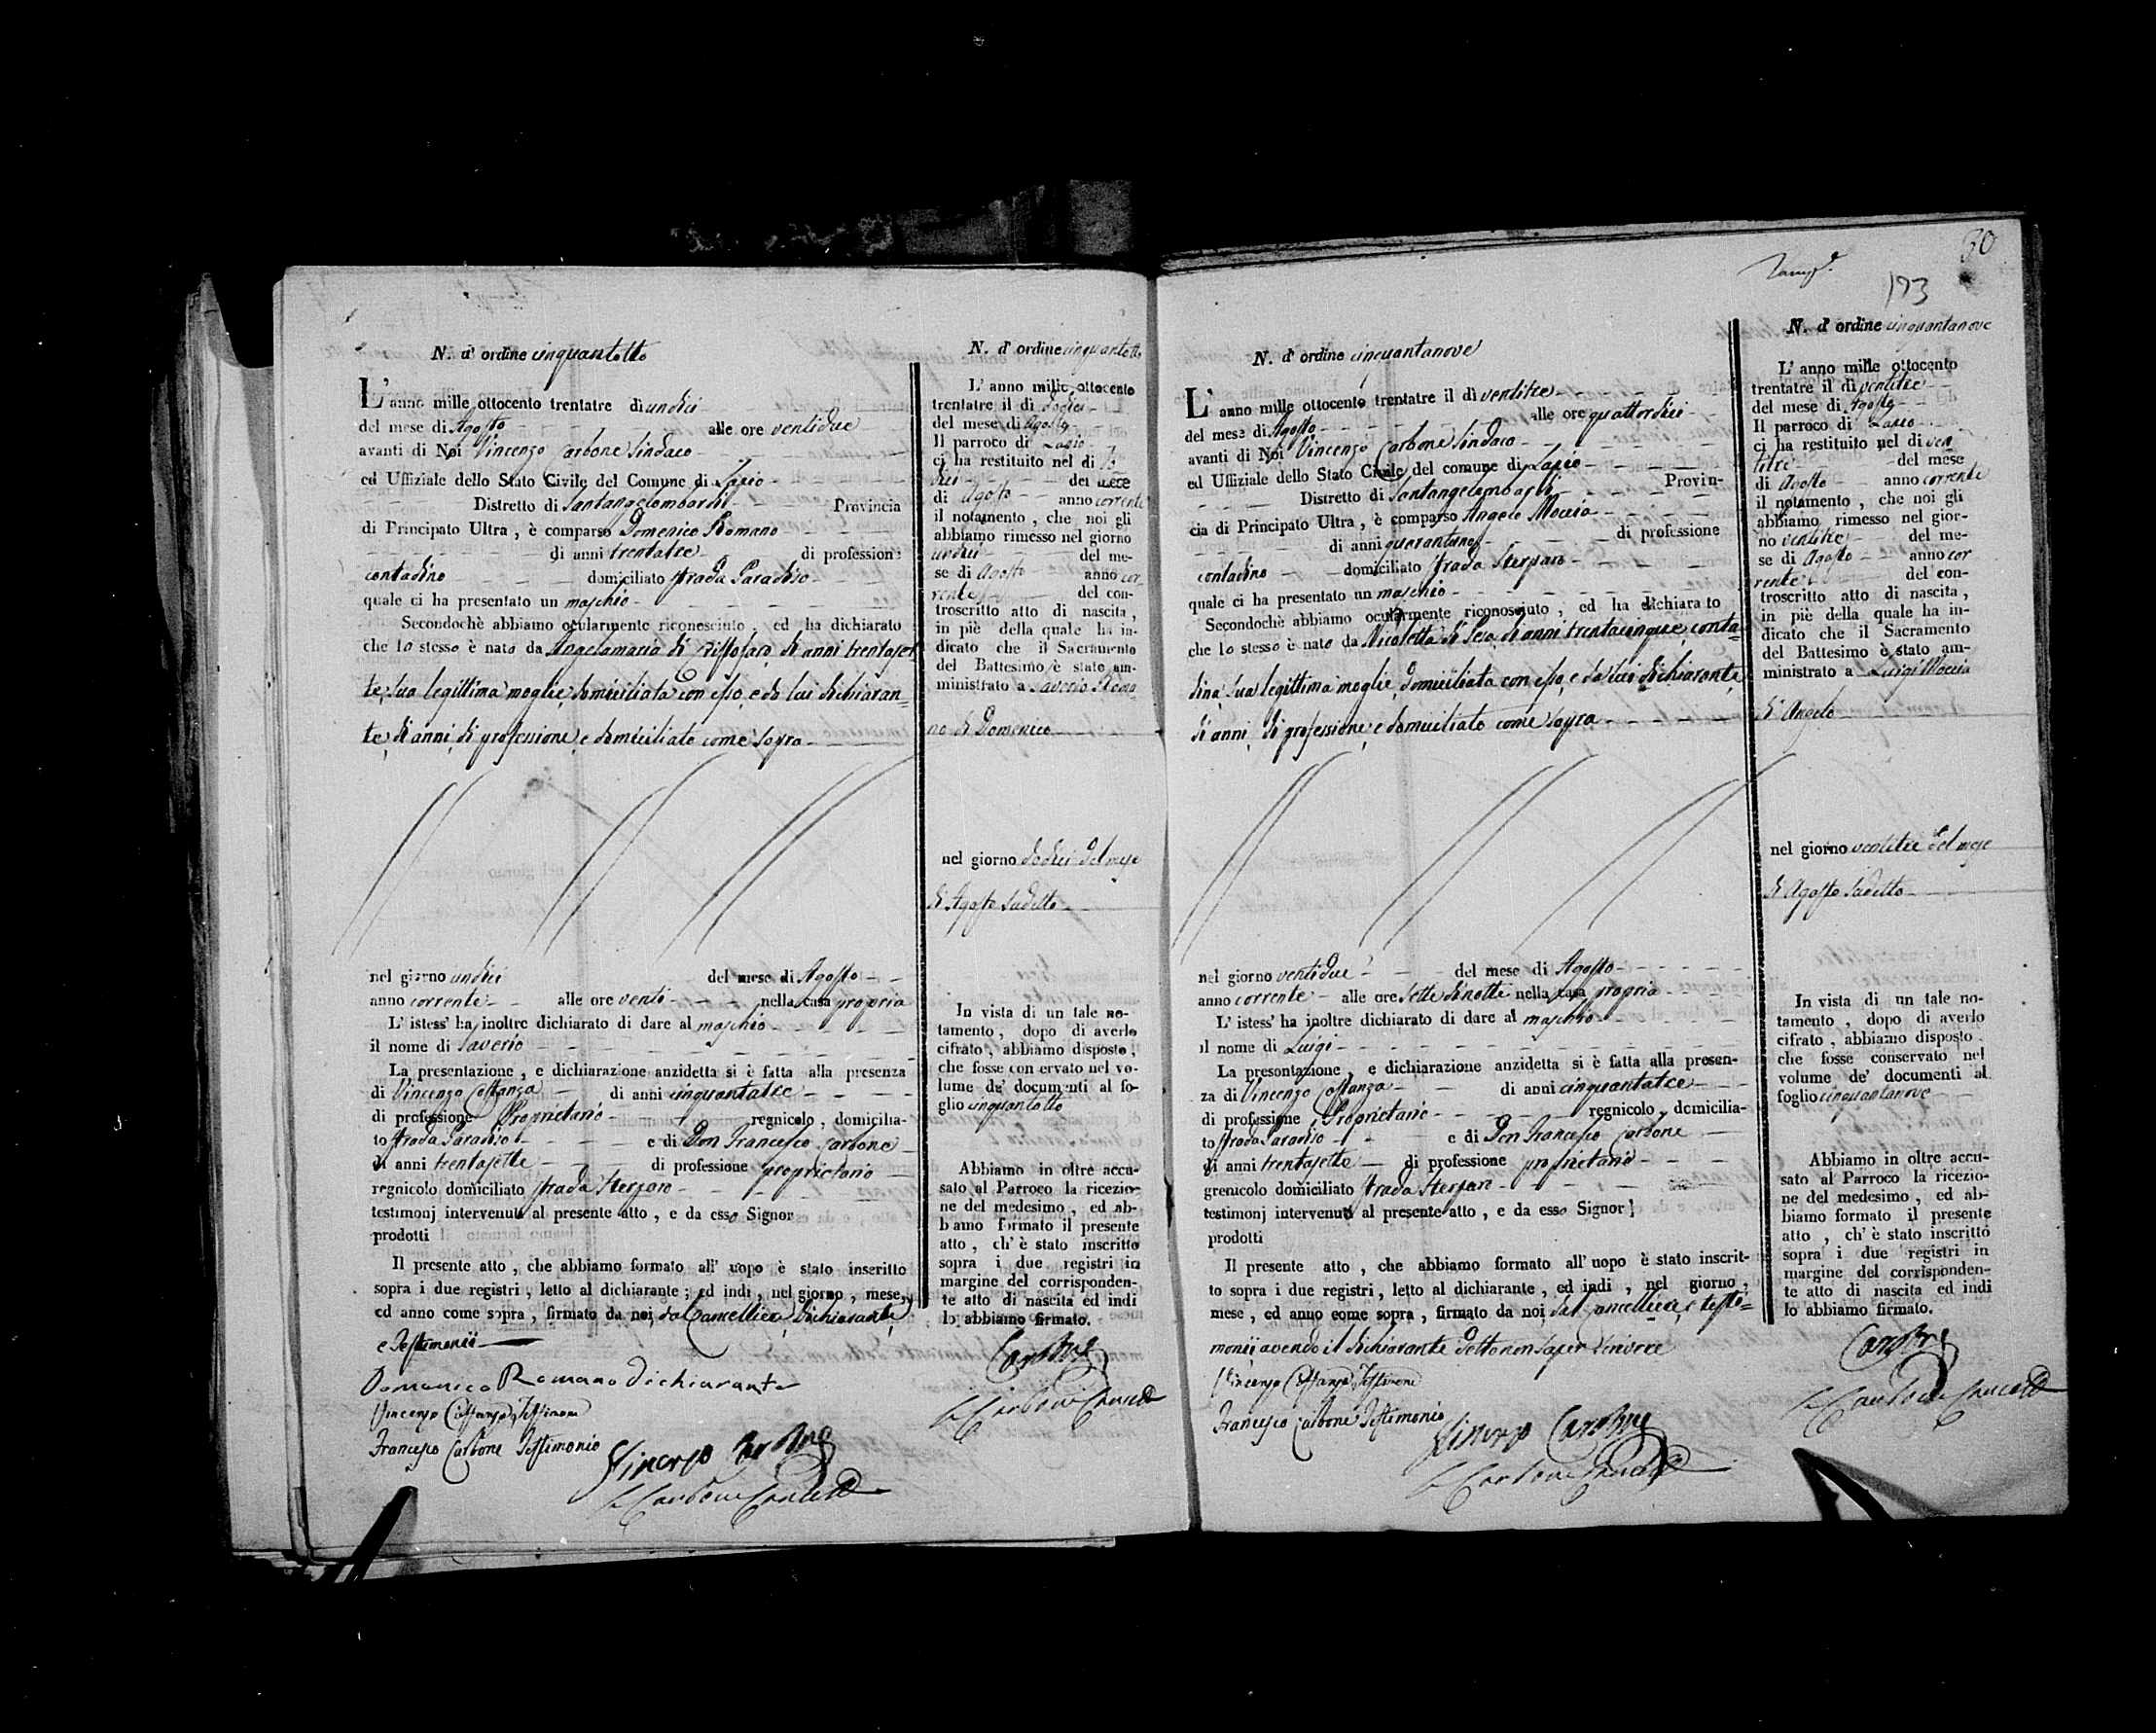 N. d' ordine cinquantotto
L' anno mille ottocento trentatre di undici
del mese di Agosto alle ore ventidue
avanti di Noi Vincenzo Carbone Sindaco
ed Uffiziale dello Stato Civile del Comune di Lapio
Distretto di Santangelombardi Provincia
di Principato Ultra , è comparso Domenico Romano
di anni trentatre di professione
contadino domiciliato strada Paradiso
quale ci ha presentato un maschio
Secondochè abbiamo ocularmente riconosciuto , ed ha dichiarato
che lo stesso è nato da Angelamaria di di anni trentaset
te, sua legittima moglie, domiciliata con esso, e da lui dichiaran=
te, di anni, di professione, e domiciliato come sopra
nel giorno undici del mese di Agosto
anno corrente alle ore venti nella casa propria
L' istess' ha inoltre dichiarato di dare al maschio
il nome di Saverio
La presentazione , e dichiarazione anzidetta si è fatta alla presenza
di Vincenzo Costanza di anni cinquantatre
di professione Proprietario regnicolo , domicilia-
to strada Paradiso e di Don Francesco Carbone
di anni trentasette di professione proprietario
regnicolo domiciliato strada Sterparo
testimonj intervenuti al presente atto , e da esso Signor
prodotti
Il presente atto , che abbiamo formato all' uopo è stato inscritto
sopra i due registri , letto al dichiarante ; ed indi , nel giorno , mese,
ed anno come sopra , firmato da noi, dal Cancelliere, Dichiarante,
e Testimonii
Domenico Romano Dichiarante
Vincenzo Costanza Testimone
Francesco Carbone Testimonio
Vincenzo Carbone
Carbone Cancell
N. d' ordine cinquantotto
L' anno mille ottocento
trentatre il di dodici
del mese di Agosto
Il parroco di Lapio
ci ha restituito nel di do
dici del mese
di Agosto anno corrente
il notamento , che noi gli
abbiamo rimesso nel giorno
undici del me-
se di Agosto anno cor
rente del con-
troscritto atto di nascita ,
in piè della quale ha in-
dicato che il Sacramento
del Battesimo è stato am-
ministrato a Saverio Roma
no di Domenico
nel giorno dodici del mese
di Agosto sudetto
In vista di un tale no-
tamento , dopo di averlo
cifrato , abbiamo disposto ,
che fosse conservato nel vo-
lume de' documenti al fo-
glio cinquantotto
Abbiamo in oltre accu-
sato al Parroco la ricezio-
ne del medesimo , ed ab-
biamo formato il presente
atto , ch' è stato inscritto
sopra i due registri in
margine del corrisponden-
te atto di nascita ed indi
lo abbiamo firmato.
Carbone
Carbone Cancell
30
173
N. d' ordine cinquantanove
L' anno mille ottocento trentatre il dì ventitre
del mese di Agosto alle ore quattordici
avanti di Noi Vincenzo Carbone Sindaco
ed Uffiziale dello Stato Civile del comune di Lapio
Distretto di Santangelombardi Provin-
cia di Principato Ultra , è comparso Angelo Moccia
di anni quarantuno di professione
contadino domiciliato strada Sterparo
quale ci ha presentato un maschio
Secondochè abbiamo ocularmente riconosciuto , ed ha dichiarato
che lo stesso è nato da Nicoletta di Peso, di anni trentacinque, conta-
dina, sua legittima moglie, domiciliata con esso, e da lui dichiarante,
di anni, di professione, e domiciliato come sopra
nel giorno ventidue del mese di Agosto
anno corrente alle ore sette di notte nella casa propria
L' istess' ha inoltre dichiarato di dare al maschio
il nome di Luigi
La presentazione , e dichiarazione anzidetta si è fatta alla presen-
za di Vincenzo Costanza di anni cinquantatre
di professione Proprietario regnicolo , domicilia-
to strada Paradiso e di Don Francesco Carbone
di anni trentasette di professione proprietario
grenicolo domiciliato strada Sterparo
testimonj intervenuti al presente atto , e da esso Signor
prodotti
Il presente atto , che abbiamo formato all' uopo è stato inscrit-
to sopra i due registri , letto al dichiarante , ed indi , nel giorno ,
mese , ed anno come sopra , firmato da noi, dal Cancelliere, e testi=
monii avendo il dichiarante detto non saper scrivere
Vincenzo Costanza Testimone
Francesco Carbone Testimonio
Vincenzo Carbone
Carbone Cancell
N. d' ordine cinquantanove
L' anno mille ottocento
trentatre il di ventitre
del mese di Agosto
Il parroco di Lapio
ci ha restituito nel di ven
titre del mese
di Agosto anno corrente
il notamento , che noi gli
abbiamo rimesso nel gior-
no ventitre del me-
se di Agosto anno cor
rente del con-
troscritto atto di nascita ,
in piè della quale ha in-
dicato che il Sacramento
del Battesimo è stato am-
ministrato a Luigi Moccia
di Angelo
nel giorno ventitre del mese
di Agosto sudetto
In vista di un tale no-
tamento , dopo di averlo
cifrato , abbiamo disposto ,
che fosse conservato nel
volume de' documenti al
foglio cinquantanove
Abbiamo in oltre accu-
sato al Parroco la ricezio-
ne del medesimo , ed ab-
biamo formato il presente
atto , ch' è stato inscritto
sopra i due registri in
margine del corrisponden-
te atto di nascita ed indi
lo abbiamo firmato.
Carbone
Carbone Cancell